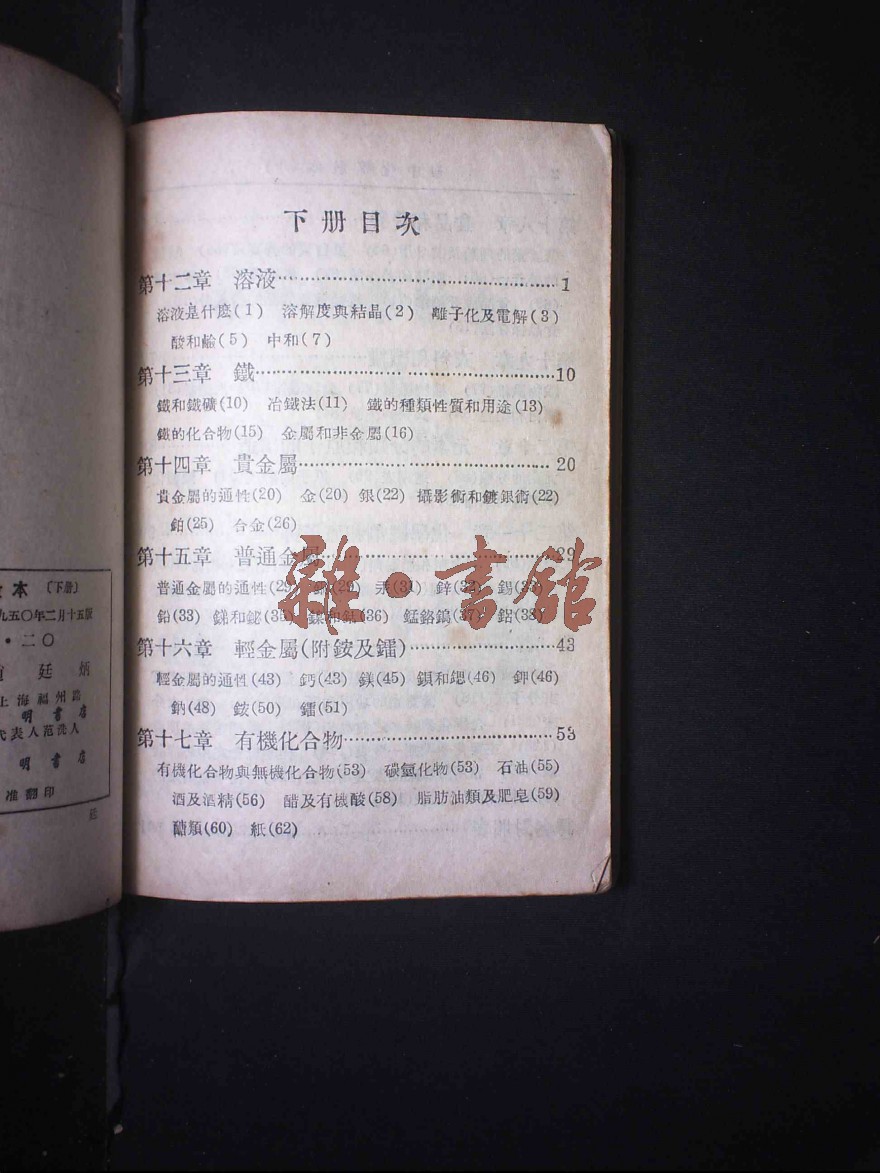 本 〔下册〕
九五〇年二月十五版
·二〇
廷炳
上海福州路
明書店
代表人范洗人
明書店
准翻印
下册目次
第十二章 溶液……1
溶液是什麽(1) 溶解度與結晶(2) 離子化及電解(3)
酸和鹼(5) 中和(7)
第十三章 鐵……10
鐵和鐵礦(10) 冶鐵法(11) 鐵的種類性質和用途(13)
鐵的化合物(15) 金屬和非金屬(16)
第十四章 貴金屬……20
貴金屬的通性(20) 金(20) 銀(22) 攝影術和鍍銀術(22)
鉑(25) 合金(26)
第十五章 普通金屬……29
普通金屬的通性(29) 汞(31) 鋅(32) 錫
鉛(33) 銻和鉍(35) (36) 錳鉻鎢(37) (38)
雜·書館
第十六章 輕金屬(附銨及鐳)……43
輕金屬的通性(43) 鈣(43) 鎂(45) 鋇和鍶(46) 鉀(46)
鈉(48) 銨(50) 鐳(51)
第十七章 有機化合物……53
有機化合物與無機化合物(53) 碳氫化物(53) 石油(55)
酒及酒精(56) 醋及有機酸(58) 脂肪油類及肥皂(59)
醣類(60) 紙(62)